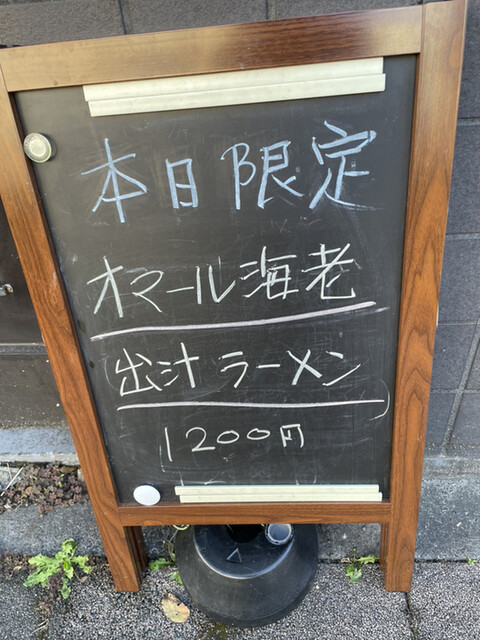 本日限定
オマール海老
出汁ラーメン
1200円